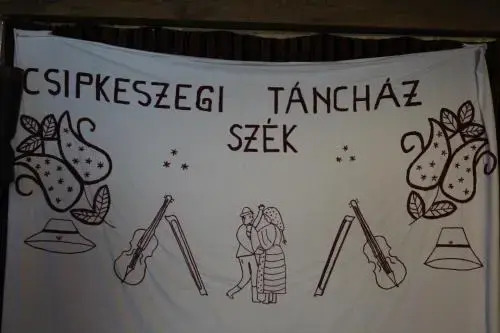 CSIPKESZEGI TÁNCHÁZ
SZÉK